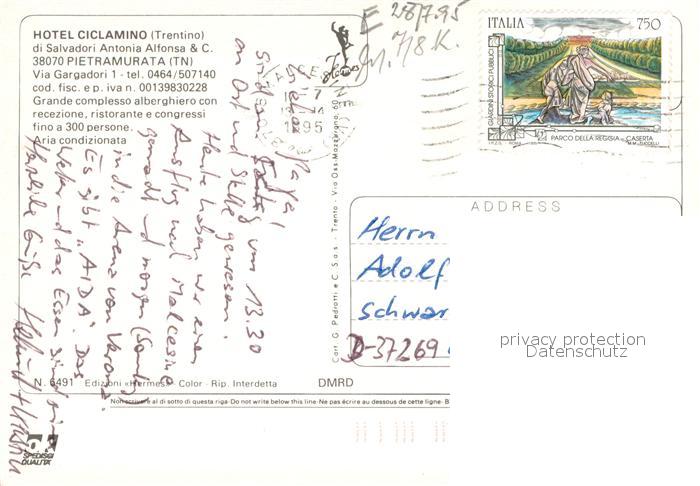 HOTEL CICLAMINO (Trentino)
di Salvadori Antonia Alfonsa & C.
38070 PIETRAMURATA (TN)
Via Gargadori 1 - tel. 0464/507140
cod. fisc. e p. iva n. 00139830228
Grande complesso alberghiero con
recezione, ristorante e congressi
fino a 300 persone.
Aria condizionata
E 28/7.95
7/8 K.
1995
ITALIA 750
GIARDINI STORICI PUBBLICI
PARCO DELLA REGGIA - CASERTA
I.P.Z.S. ROMA
M.M. TUCCELLI
Liebe
sind am um 13.30
an Ort und Stelle gewesen.
Heute haben wir einen
Ausflug nach Malcesine
gemacht und morgen
in die Arena von Verona.
Es gibt "AIDA". Das
Wetter und das Essen sind
Herzliche Grüße Helmut
Cart. G. Pedrotti e C. S.a.s. - Trento - Via Oss. Mazzurana, 60
ADDRESS
Herrn
Adolf
Schwar
D-37269
privacy protection
Datenschutz
N. 6491 Edizioni «Hermes» Color - Rip. Interdetta DMRD
Non scrivere al di sotto di questa riga - Do not write below this line - Ne pas écrire au dessous de cette ligne - B
SPEDISCI
QUALITÀ